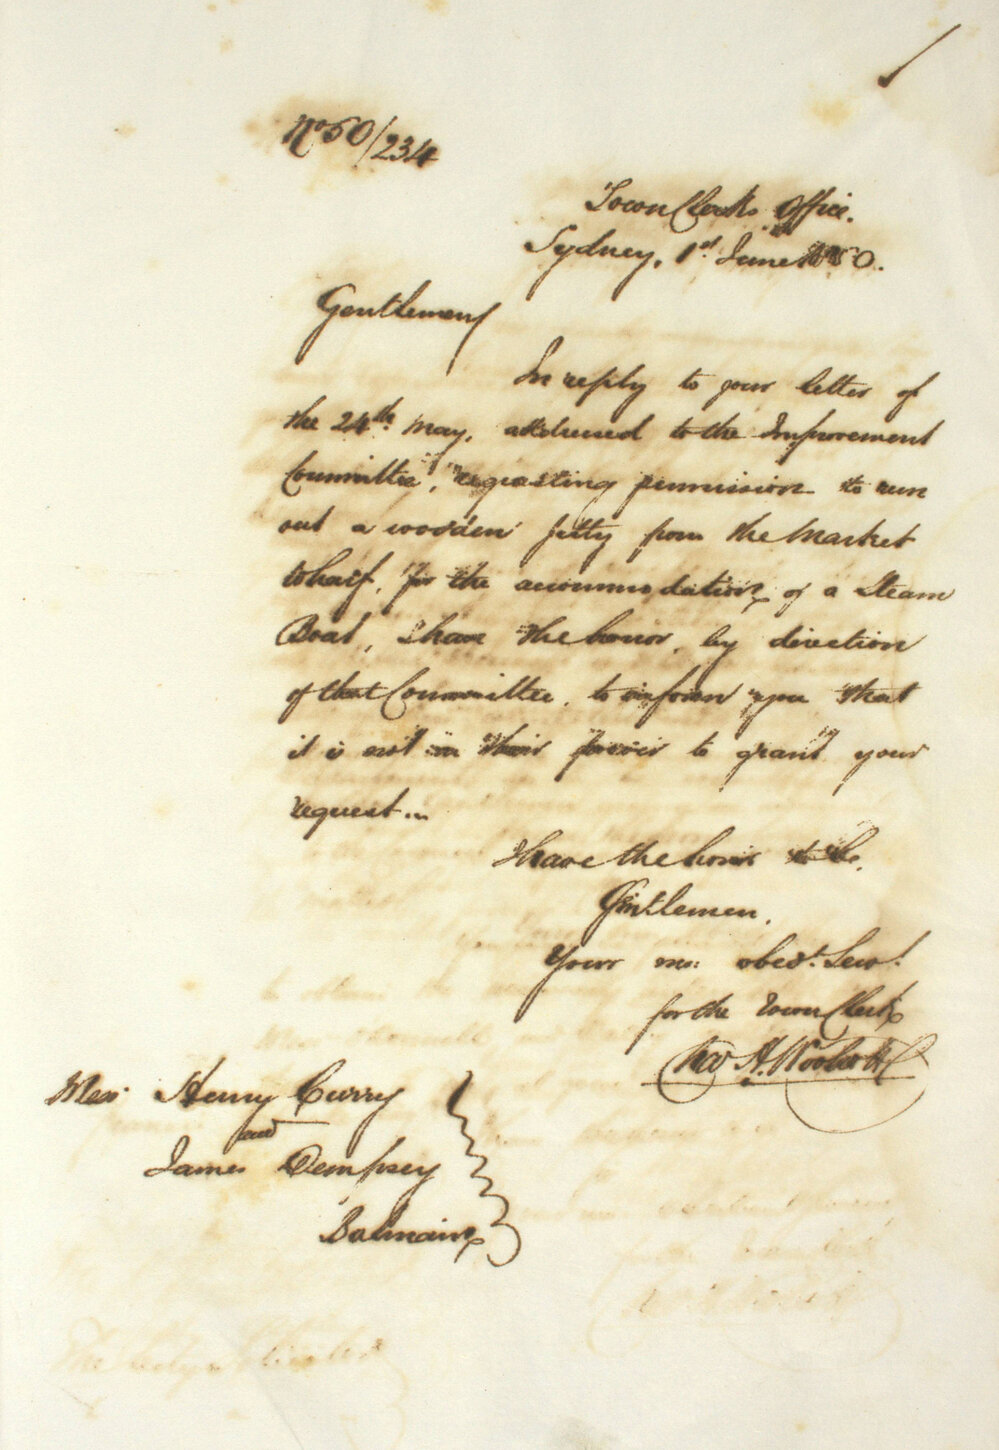 No 50/234
Town Clerks Office.
Sydney, 1st June 1850.
Gentlemen
In reply to your letter of
the 24th May, addressed to the Improvement
Committee, requesting permission to run
out a wooden jetty from the Market
Wharf, for the accommodation of a Steam
Boat, I have the honor, by direction
of that Committee, to inform you that
it is not in their power to grant your
request...
I have the honor to be,
Gentlemen,
Your mo: obedt. Servt.
for the Town Clerk
H. Woolcott
Messrs Henry Curry
and
James Dempsey
Balmain